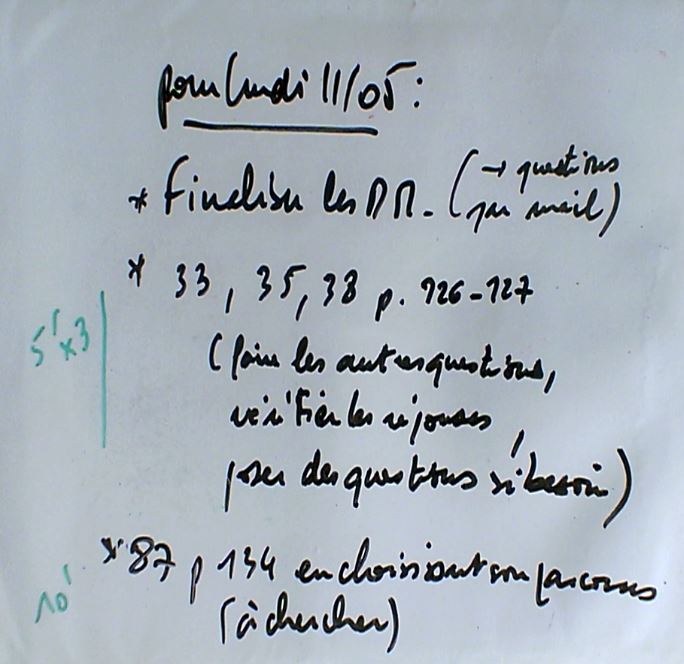 pour lundi 11/05 :
* Finaliser les DM. (→ questions
par mail)
* 33, 35, 38 p. 126-127
5' x3
(faire les autres questions,
vérifier les réponses,
poser des questions si besoin)
* 87 p 134 en choisissant son parcours
10'
(à chercher)